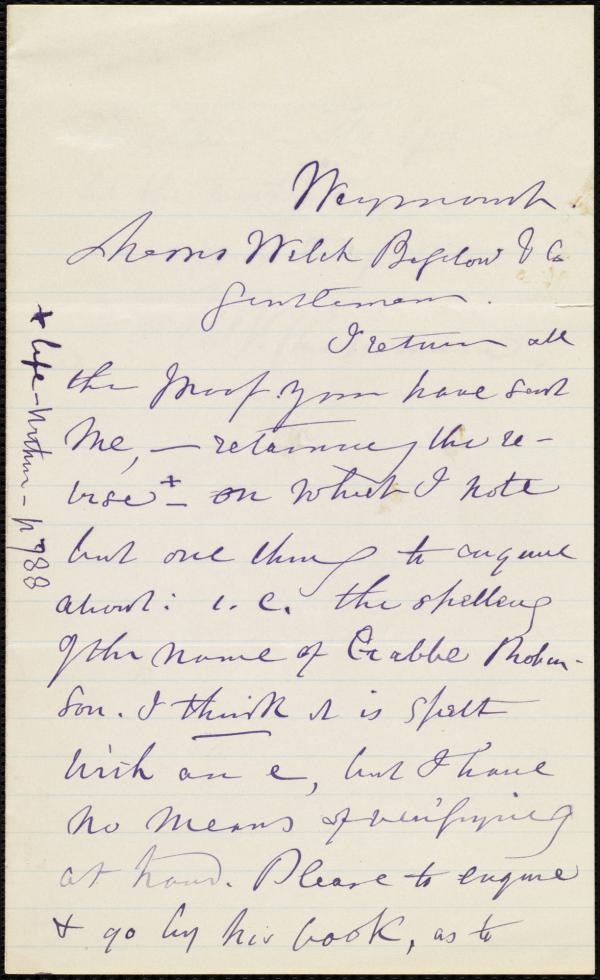 Weymouth.
Messrs Welch Bigelow & Co
Gentlemen.
I return all
the proof you have sent
me, — retaining the re-
vise + — on which I note
but one thing to enquire
about: i.e. the spelling
of the name of Crabbe Robin-
son. I think it is spelt
with an e, but I have
no means of verifying
at hand. Please to enquire
& go by his book, as to
+ life - - p 988